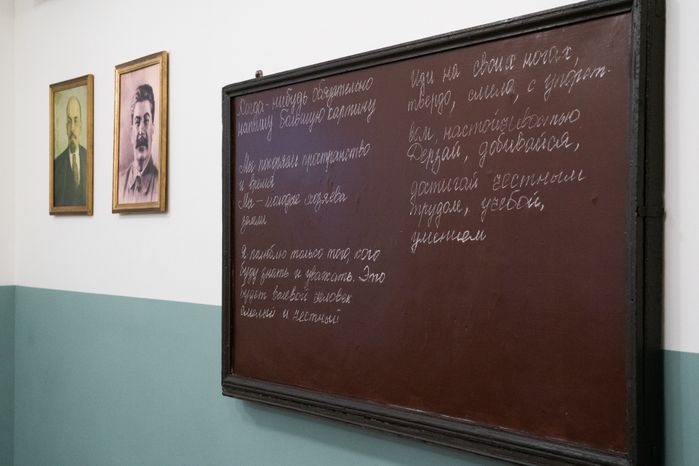 Когда-нибудь обязательно
напишу большую картину
Мы покоряем пространство
и время
Мы - молодые хозяева
земли
Я полюблю только того, кого
буду знать и уважать. Это
будет волевой человек
смелый и честный
Иди на своих ногах,
твердо, смело, с упорст-
вом настойчивостью
Дерзай, добивайся,
достигай честным
трудом, учебой,
умением